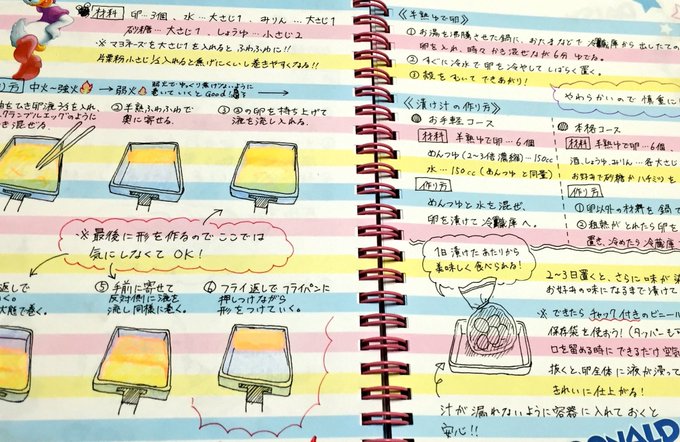 材料 卵…3個、水…大さじ1、みりん…大さじ1
砂糖…大さじ1、しょうゆ…小さじ2
※マヨネーズを大さじ1を入れるとふわふわに!!
片栗粉小さじ1/2入れると焦げにくいし巻きやすくなる!!
り方 中火〜強火 → 弱火
をひき卵液1/3を入れ、
クランブルエッグのように
き混ぜる。
②半熟ふわふわで
奥に寄せる。
③②の卵を持ち上げて
液を流し入れる。
※最後に形を作るのでここでは
気にしなくてOK!
返しで
く。
状態で巻く。
⑤手前に寄せて
反対側に液を
流し同様に巻く。
⑥フライ返しでフライパンに
押しつけながら
形をつけていく。
《半熟ゆで卵》
①お湯を沸騰させた鍋に、おたまなどで冷蔵庫から出したての
卵を入れ、時々かき混ぜながら6分ゆでる。
②すぐに冷水で卵を冷やしてしばらく置く。
③殻をむいてできあがり!
やわらかいので慎重に
《漬け汁の作り方》
お手軽コース
材料 半熟ゆで卵…6個
めんつゆ(2〜3倍濃縮)…150cc
水…150cc(めんつゆと同量)
作り方
めんつゆと水を混ぜ、
卵を漬けて冷蔵庫へ。
本格コース
材料 半熟ゆで卵…6個
酒、しょうゆ、みりん…各大さじ
お好みで砂糖かハチミツを
作り方
①卵以外の材料を鍋で
②粗熱がとれたら卵を
置き、冷めたら冷蔵庫
1日漬けたあたりから
美味しく食べられる!
2〜3日置くと、さらに味が
お好みの味になるまで漬けて
※できたらチャック付きのビニール
保存袋を使おう!(タッパーも可
口を留める時にできるだけ空気
抜くと、卵全体に液が浸って
きれいに仕上がる!
汁が漏れないように容器に入れておくと
安心!!
DONALD